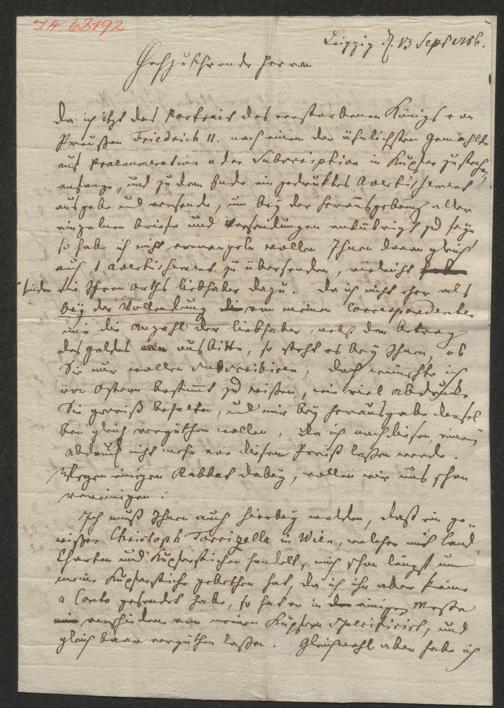 I.A. 68192
Leipzig d. 13 Sept. 1786.
Hochzuehrende Herren
Da ich itzt das Portrait des verstorbenen Königs von
Preußen Friedrich II. nach einem der ähnlichsten Gemählde
auf Praenumeration oder Subscription in Kupfer zu stechen
anfange, und zu dem Ende ein gedrucktes Avertissement
ausgebe und versende, um bey der Herausgebung aller
einzelnen Briefe und Versendungen entübrigt zu seyn
so habe ich nicht ermangeln wollen Ihnen davon gleich
auch 1 Avertissement zu übersenden, vielleicht
finden sie Ihres Orths Liebhaber dazu. Da ich nicht eher als
bey der Vollendung von meinen Correspondenten
mir die Anzahl der Liebhaber, nebst dem Betrag
des Geldes ausbitte, so steht es bey Ihnen, ob
Sie nur wollen subscribiren, doch wünschte ich
vor Ostern bestimmt zu wissen, wie viel Abdrücke
Sie gewiß behalten, und mir bey Herausgabe dersel
ben gleich vergüthen wollen, da ich nachdiesen
Abdruck nicht mehr vor diesen Preiß lassen werde.
Wegen einigen Rabbat dabey, wollen wir uns schon
vereinigen.
Ich muß Ihnen auch hierbey melden, daß ein ge-
wißer Christoph Torricella in Wien, welcher mit Land
Charten und Kupferstichen handelt, mich schon längst um
meine Kupferstiche gebethen hat, da ich ihm aber keine
a Conto gesendet habe, so hat er in Messe
verschieden von meinen Kupfern specificirt, und
gleich baar vergüthen lassen. Gleichwohl aber habe ich